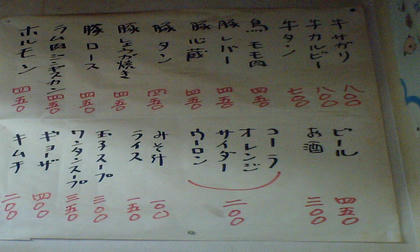 牛サガリ 八〇〇
牛カルビー 八〇〇
牛タン 七〇〇
鳥モモ肉 四五〇
豚レバー 四五〇
豚心臓 四五〇
豚タン 四五〇
豚しょうが焼き 四五〇
豚ロース 四五〇
ラム肉ジンギスカン 四五〇
ホルモン 四五〇
ビール 四五〇
お酒 三〇〇
コーラ
オレンジ
サイダー
ウーロン
二〇〇
みそ汁 一〇〇
ライス 一五〇
玉子スープ 三〇〇
ワンタンスープ 三五〇
ギョーザ 四〇〇
キムチ 二〇〇